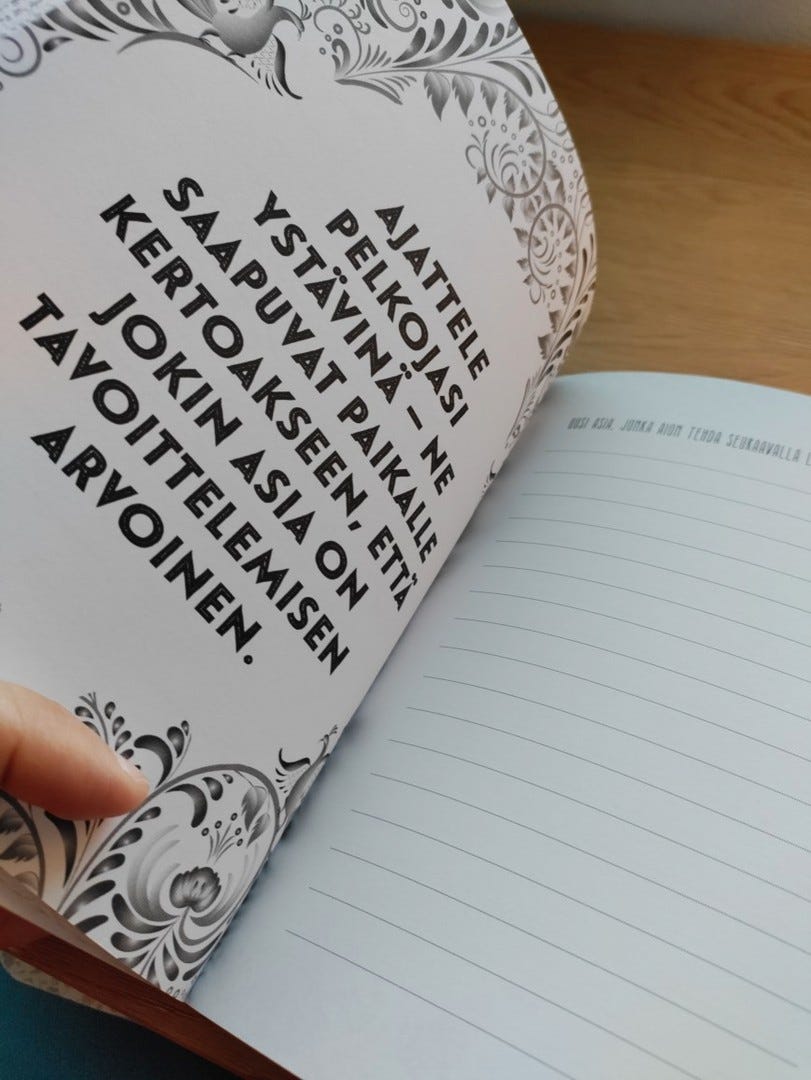 AJATTELE
PELKOJASI
YSTÄVINÄ – NE
SAAPUVAT PAIKALLE
KERTOAKSEEN, ETTÄ
JOKIN ASIA ON
TAVOITTELEMISEN
ARVOINEN.
UUSI ASIA, JONKA AION TEHDÄ SEURAAVALLA